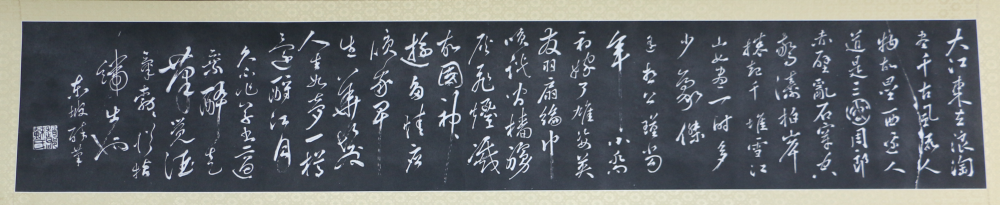 大江東去浪淘
尽千古風流人
物故壘西邊人
道是三國周郎
赤壁亂石穿空
驚濤拍岸
捲起千堆雪江
山如畫一時多
少豪傑
遙想公瑾當
年小喬
初嫁了雄姿英
發羽扇綸巾
笑談間檣艣
灰飛煙滅
故國神
遊多情應
笑我早
生華髮
人生如夢一樽
還酹江月
久不作草書適
乘醉走
筆覺酒
氣勃勃從指
端出也
東坡醉筆